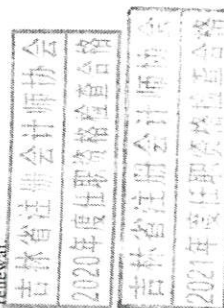 renewal.
吉林省注册会计师协会
2020年度任职资格检查合格
吉林省注册会计师协会
2021年度任职资格检查合格